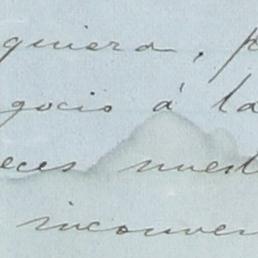 quiera, p
gocio á la
eces nuest
inconven